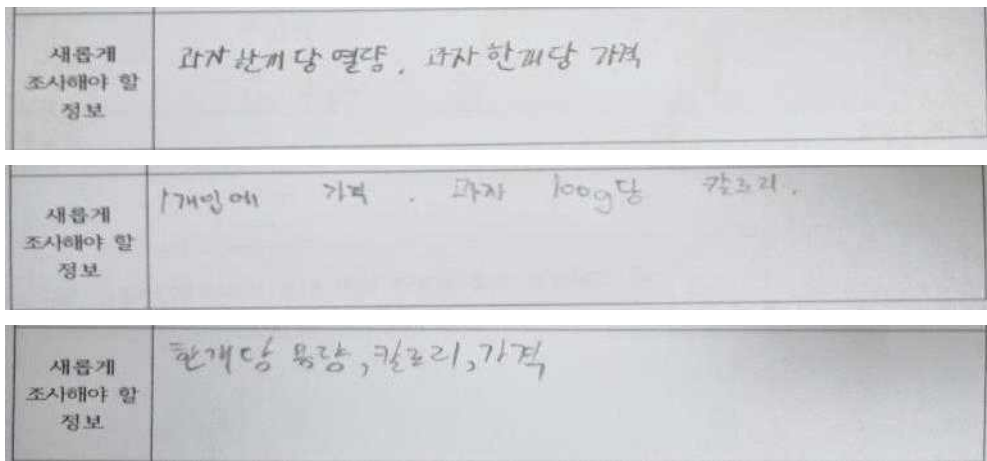 새롭게
조사해야 할
정보
과자 한개당 열량, 과자 한개당 가격
새롭게
조사해야 할
정보
가격. 과자 100g당 칼로리.
새롭게
조사해야 할
정보
한개당 용량, 칼로리, 가격